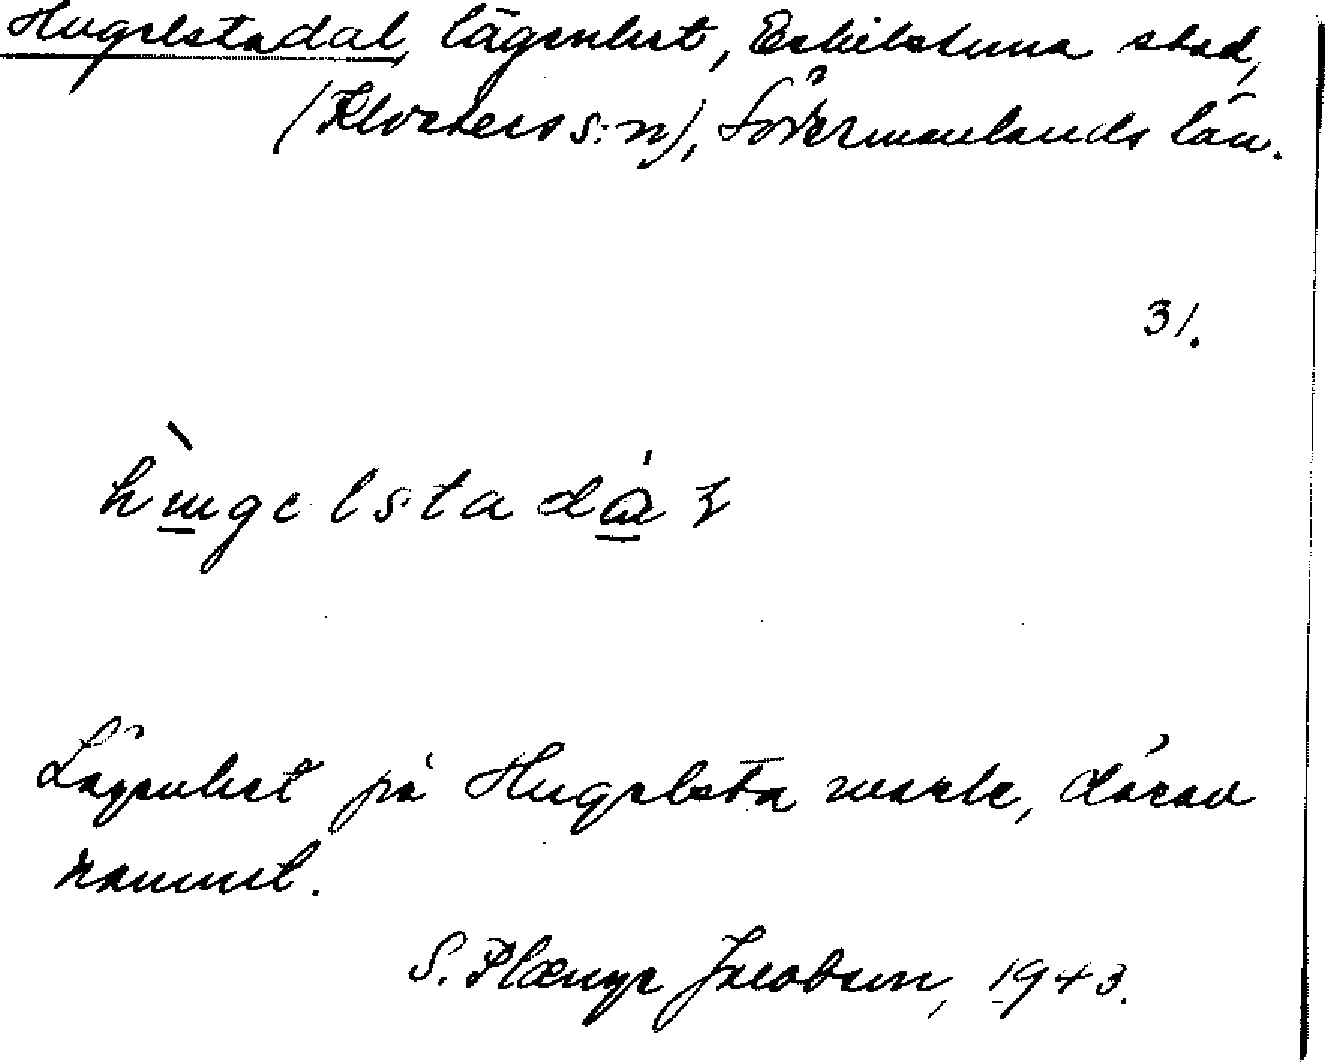 Hugelstadal, lägenhet, Eskilstuna stad,
(Klosters s:n), Södermanlands län.
31.
Lägenhet på Hugelsta mark, därav
namnet.
S. Plænge Jacobson, 1943.